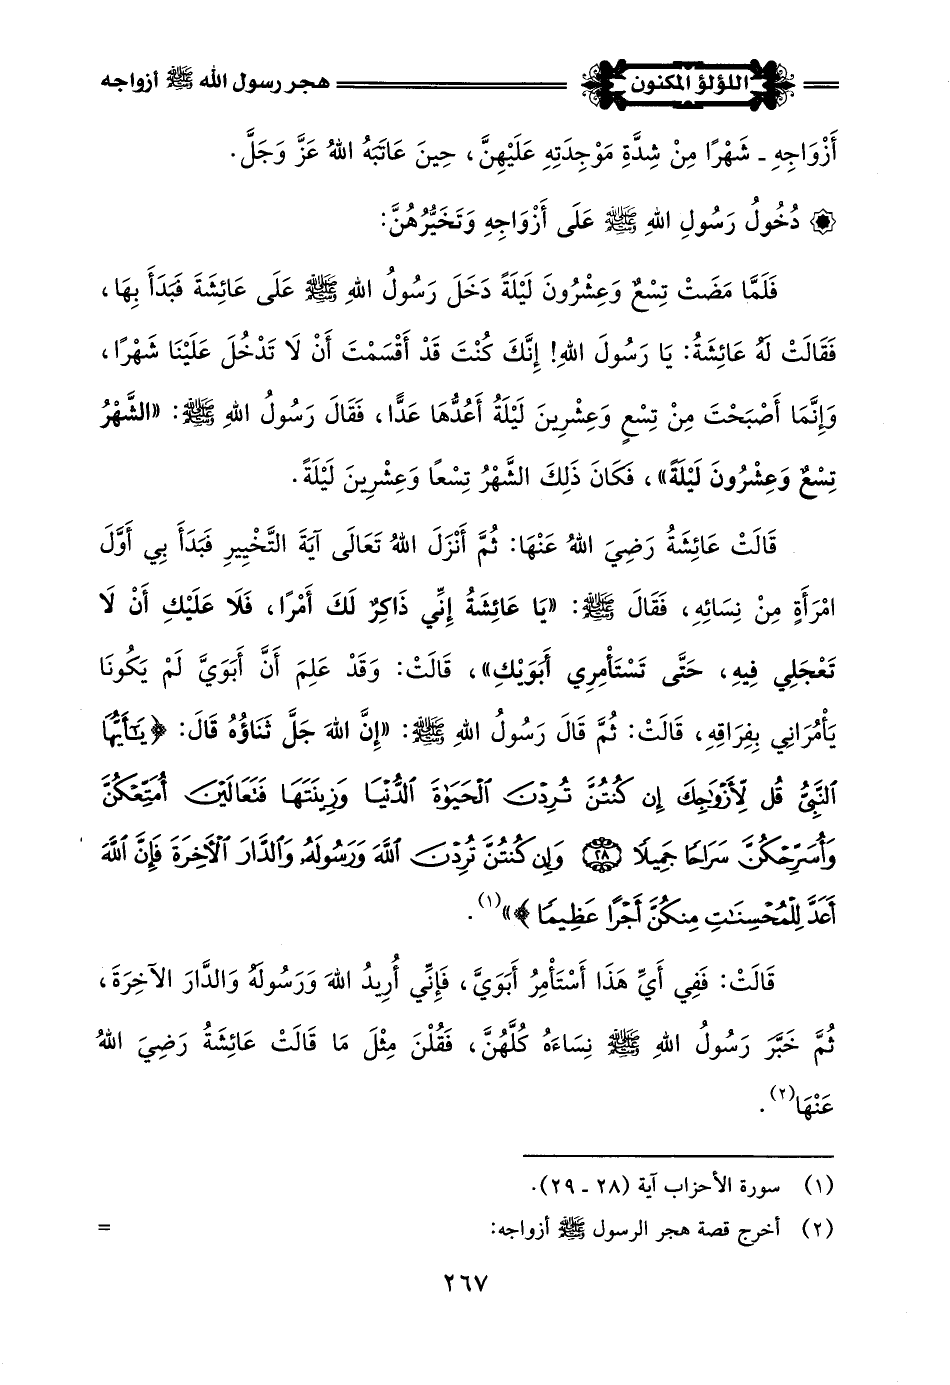 اللؤلؤ المكنون هجر رسول الله ﷺ أزواجه
أَزْوَاجِهِ - شَهْرًا مِنْ شِدَّةِ مَوْجِدَتِهِ عَلَيْهِنَّ، حِينَ عَاتَبَهُ اللهُ عَزَّ وَجَلَّ.
۞ دُخُولُ رَسُولِ اللهِ ﷺ عَلَى أَزْوَاجِهِ وَتَخَيُّرُهُنَّ:
فَلَمَّا مَضَتْ تِسْعٌ وَعِشْرُونَ لَيْلَةً دَخَلَ رَسُولُ اللهِ ﷺ عَلَى عَائِشَةَ فَبَدَأَ بِهَا،
فَقَالَتْ لَهُ عَائِشَةُ: يَا رَسُولَ اللهِ! إِنَّكَ كُنْتَ قَدْ أَقْسَمْتَ أَنْ لَا تَدْخُلَ عَلَيْنَا شَهْرًا،
وَإِنَّمَا أَصْبَحْتَ مِنْ تِسْعٍ وَعِشْرِينَ لَيْلَةً أَعُدُّهَا عَدًّا، فَقَالَ رَسُولُ اللهِ ﷺ: «الشَّهْرُ
تِسْعٌ وَعِشْرُونَ لَيْلَةً»، فَكَانَ ذَلِكَ الشَّهْرُ تِسْعًا وَعِشْرِينَ لَيْلَةً.
قَالَتْ عَائِشَةُ رَضِيَ اللهُ عَنْهَا: ثُمَّ أَنْزَلَ اللهُ تَعَالَى آيَةَ التَّخْيِيرِ فَبَدَأَ بِي أَوَّلَ
امْرَأَةٍ مِنْ نِسَائِهِ، فَقَالَ ﷺ: «يَا عَائِشَةُ إِنِّي ذَاكِرٌ لَكَ أَمْرًا، فَلَا عَلَيْكِ أَنْ لَا
تَعْجَلِي فِيهِ، حَتَّى تَسْتَأْمِرِي أَبَوَيْكِ»، قَالَتْ: وَقَدْ عَلِمَ أَنَّ أَبَوَيَّ لَمْ يَكُونَا
يَأْمُرَانِي بِفِرَاقِهِ، قَالَتْ: ثُمَّ قَالَ رَسُولُ اللهِ ﷺ: «إِنَّ اللهَ جَلَّ ثَنَاؤُهُ قَالَ: ﴿يَٰٓأَيُّهَا
ٱلنَّبِيُّ قُل لِّأَزْوَٰجِكَ إِن كُنتُنَّ تُرِدْنَ ٱلْحَيَوٰةَ ٱلدُّنْيَا وَزِينَتَهَا فَتَعَالَيْنَ أُمَتِّعْكُنَّ
وَأُسَرِّحْكُنَّ سَرَاحًا جَمِيلًا ٢٨ وَإِن كُنتُنَّ تُرِدْنَ ٱللَّهَ وَرَسُولَهُۥ وَٱلدَّارَ ٱلْأَخِرَةَ فَإِنَّ ٱللَّهَ
أَعَدَّ لِلْمُحْسِنَٰتِ مِنكُنَّ أَجْرًا عَظِيمًا﴾»(١).
قَالَتْ: فَفِي أَيِّ هَذَا أَسْتَأْمِرُ أَبَوَيَّ، فَإِنِّي أُرِيدُ اللهَ وَرَسُولَهُ وَالدَّارَ الآخِرَةَ،
ثُمَّ خَيَّرَ رَسُولُ اللهِ ﷺ نِسَاءَهُ كُلَّهُنَّ، فَقُلْنَ مِثْلَ مَا قَالَتْ عَائِشَةُ رَضِيَ اللهُ
عَنْهَا(٢).
(١) سورة الأحزاب آية (٢٨ - ٢٩).
(٢) أخرج قصة هجر الرسول ﷺ أزواجه: =
٢٦٧